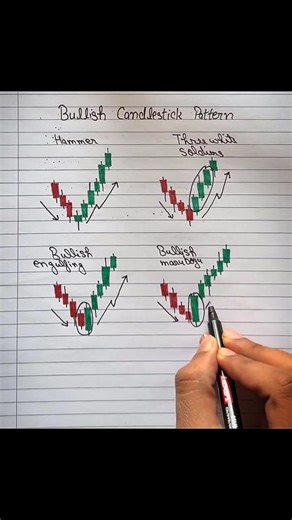 Bullish Candlestick Pattern
Hammer
Three white
Soldiers
Bullish
engulfing
Bullish
marubozu